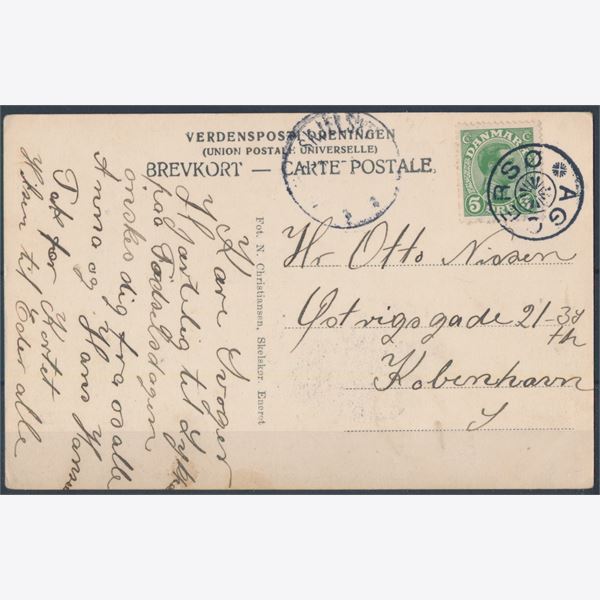 VERDENSPOSTFORENINGEN
(UNION POSTALE UNIVERSELLE)
BREVKORT — CARTE POSTALE.
DANMARK
5
AGERSØ
Hr Otto Nissen
Østrigsgade 21-3d
th
København
S
Fot. N. Christiansen, Skelskør. Eneret
Kære Svoger
Hjærtelig til Lykke
paa Fødselsdagen
ønskes dig fra os alle
Anna og Hans
Tak for Kortet
Hilsen til Eder alle